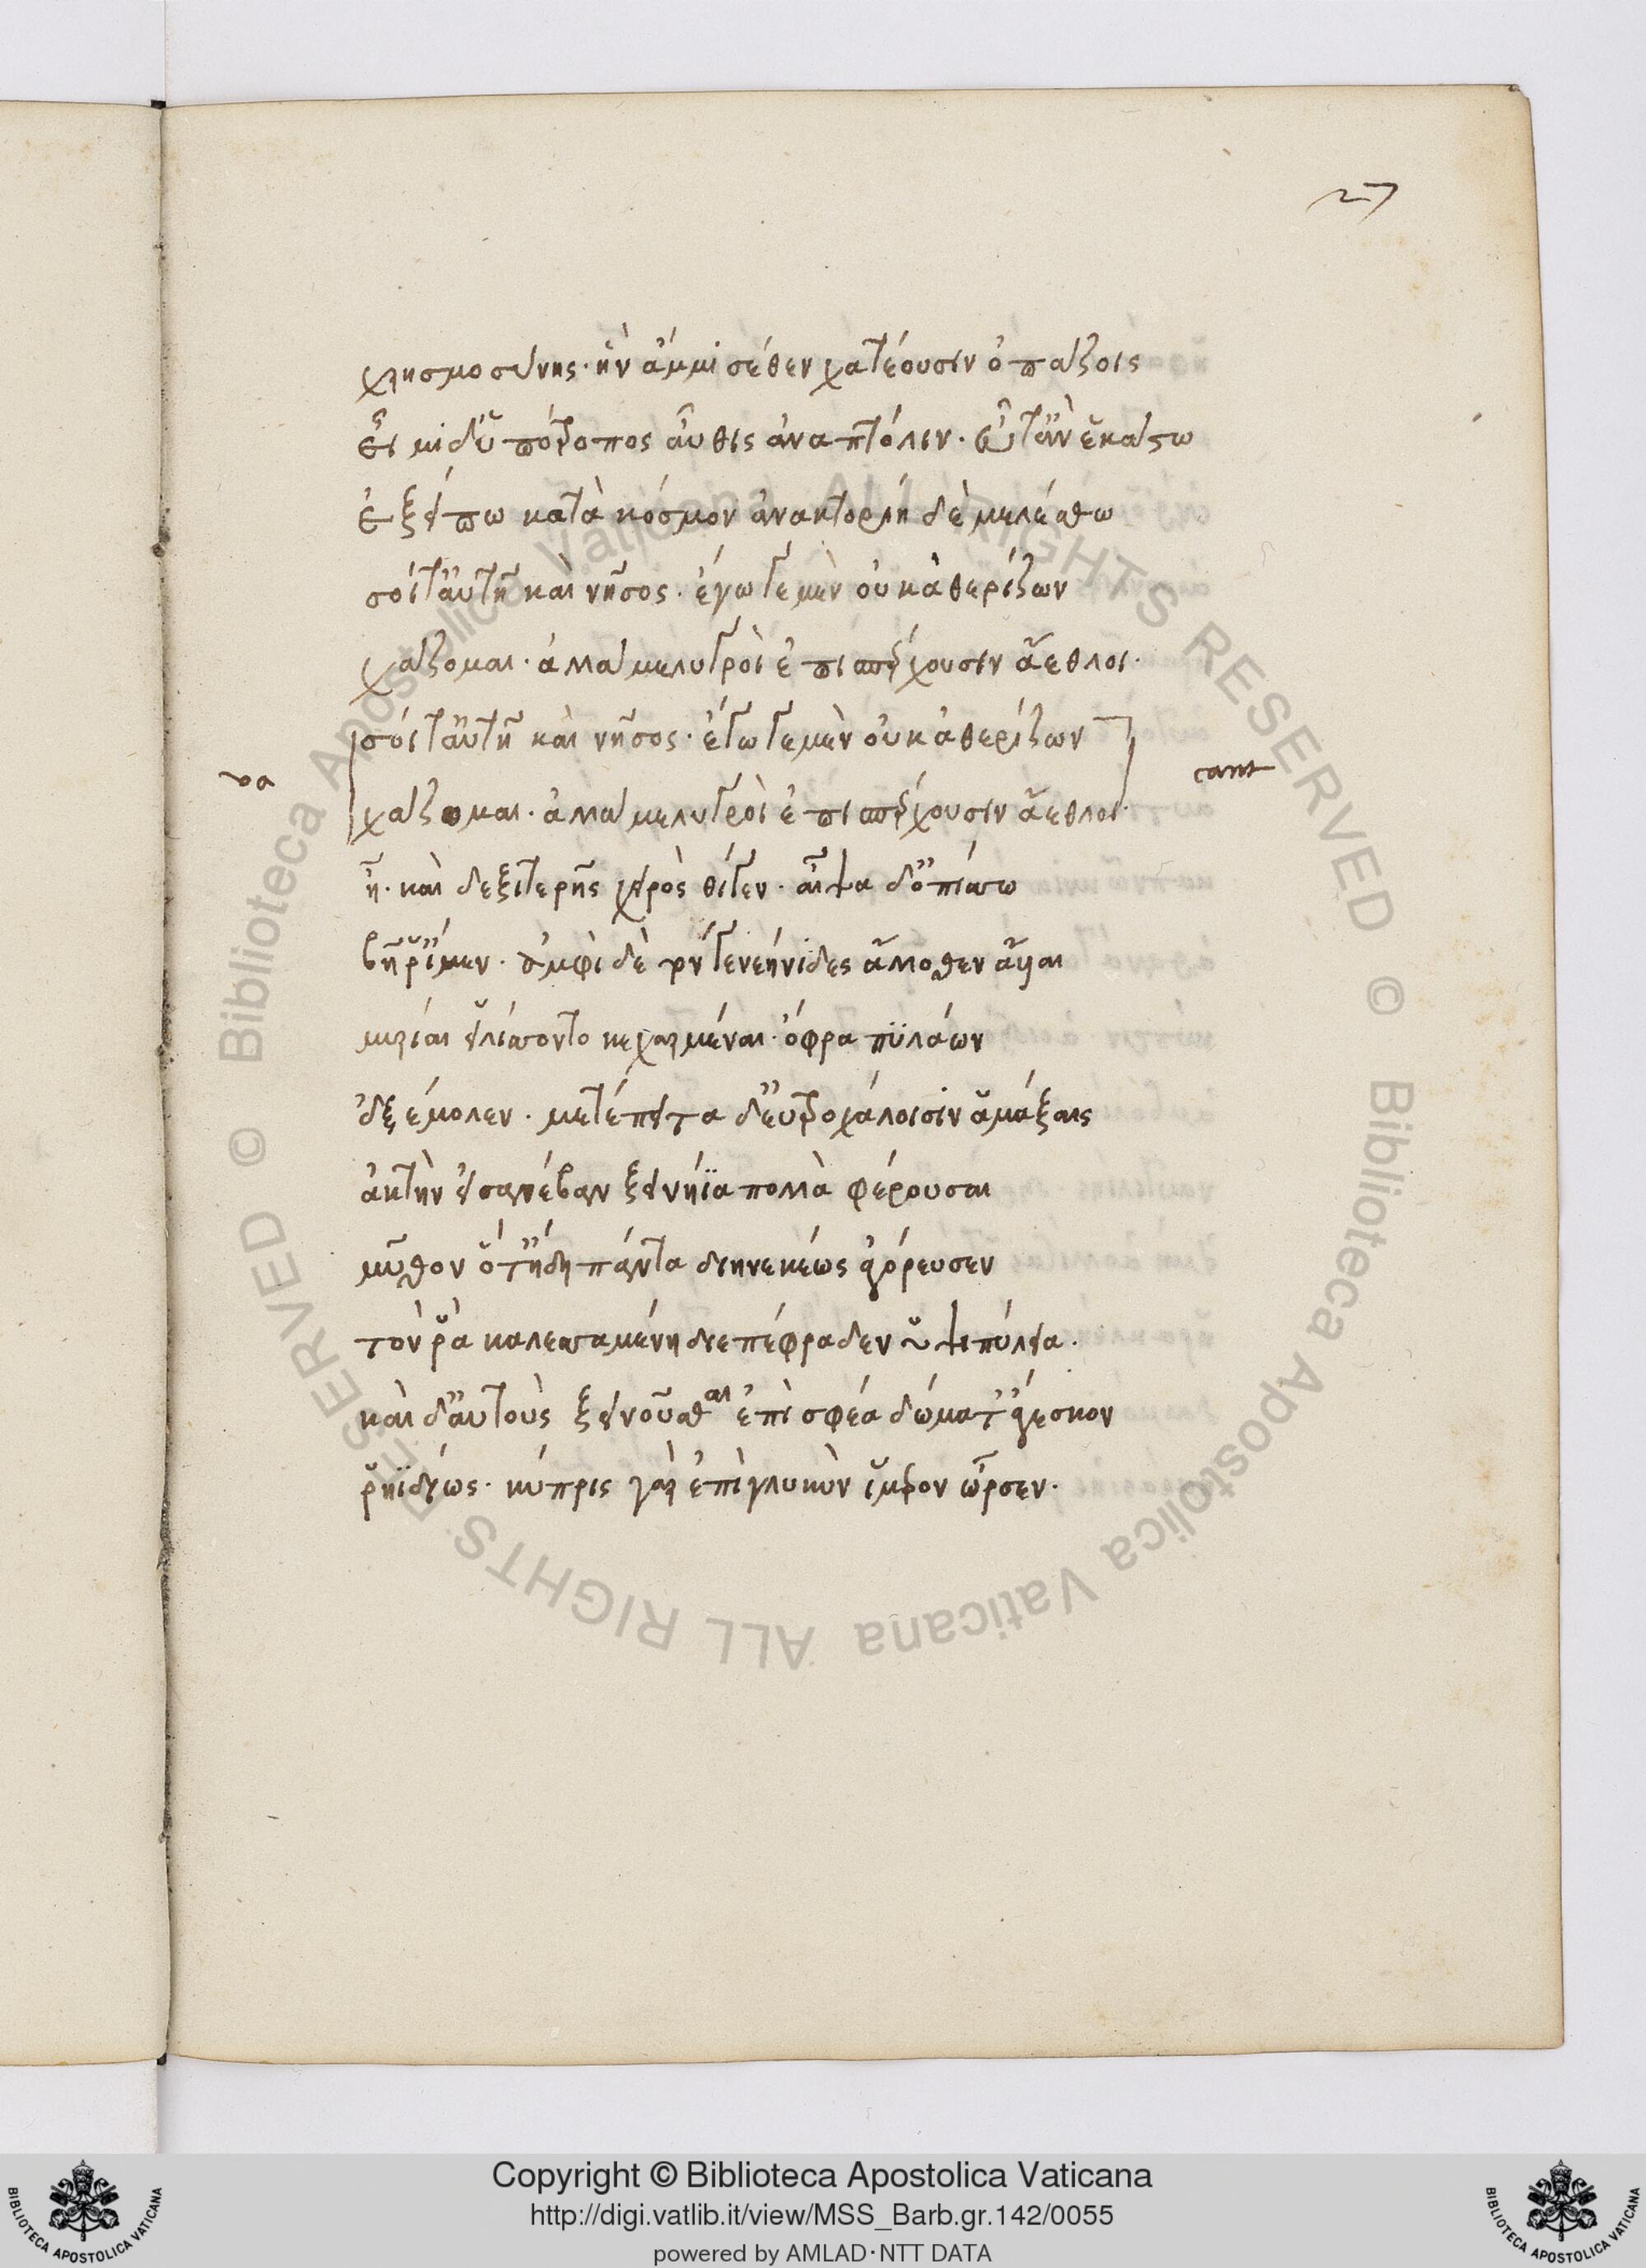 27
χρησμοσύνης· ἣν ἄμμι σέθεν χατέουσιν ὀπάζοις
εἶμι δ' ὑπότροπος αὖθις ἀνὰ πτόλιν· εὖτ' ἂν ἕκαστα
ἐξείπω κατὰ κόσμον ἀνακτορίη δὲ μελέσθω
σοίτ' αὐτῆ καὶ νῆσος· ἐγώγε μὲν οὐκ ἀθερίζων
χάζομαι· ἀλλά με λυγροὶ ἐπισπέρχουσιν ἄεθλοι·
σοίτ' αὐτῆ καὶ νῆσος· ἐγώγε μὲν οὐκ ἀθερίζων
va
cant
χάζομαι· ἀλλά με λυγροὶ ἐπισπέρχουσιν ἄεθλοι·
ἦ· καὶ δεξιτερῆς χειρὸς θίγεν· αἶψα δ' ὀπίσσω
βῆ ῥ' ἴμεν· ἀμφὶ δὲ τόν γε νεήνιδες ἄλλοθεν ἄλλαι
μυρίαι εἱλίσσοντο κεχαρμέναι· ὄφρα πϋλάων
ἐξέμολεν· μετέπειτα δ' ἐϋτροχάλοισιν ἁμάξαις
ἀκτὴν εἰσανέβαν ξεινήϊα πολλὰ φέρουσαι
μῦθον ὅτ' ἤδη πάντα διηνεκέως ἀγόρευσεν
τόν ῥα καλεσσαμένη διεπέφραδεν ὑψιπύλεια·
καὶ δ' αὐτοὺς ξεινοῦσθαι ἐπὶ σφέα δώματ' ἄγεσκον
ῥηϊδίως· κύπρις γὰρ ἐπὶ γλυκὺν ἵμερον ὦρσεν·
© Biblioteca Apostolica Vaticana ALL RIGHTS RESERVED
© Biblioteca Apostolica Vaticana ALL RIGHTS RESERVED
Copyright © Biblioteca Apostolica Vaticana
http://digi.vatlib.it/view/MSS_Barb.gr.142/0055
powered by AMLAD·NTT DATA
BIBLIOTECA APOSTOLICA VATICANA
BIBLIOTECA APOSTOLICA VATICANA